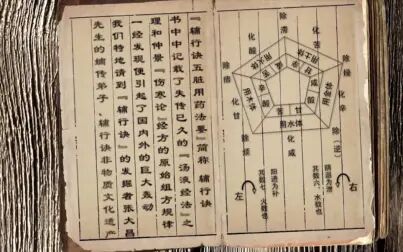 『辅行诀五脏用药法要』简称『辅行诀』
书中记载了失传已久的『汤液经法』之
理和仲景『伤寒论』经方的原始组方规律
一经发现便引起了国内外的巨大轰动
我们特地请到『辅行诀』的发掘者张大昌
先生的嫡传弟子、辅行诀非物质文化遗产
除滞
化苦
除燥
化辛
除(逆)
化咸
除烦
化甘
除痞
化酸
用水体
右
阴退为泄
其数六、水数也
左
阳进为补
其数七、火数也